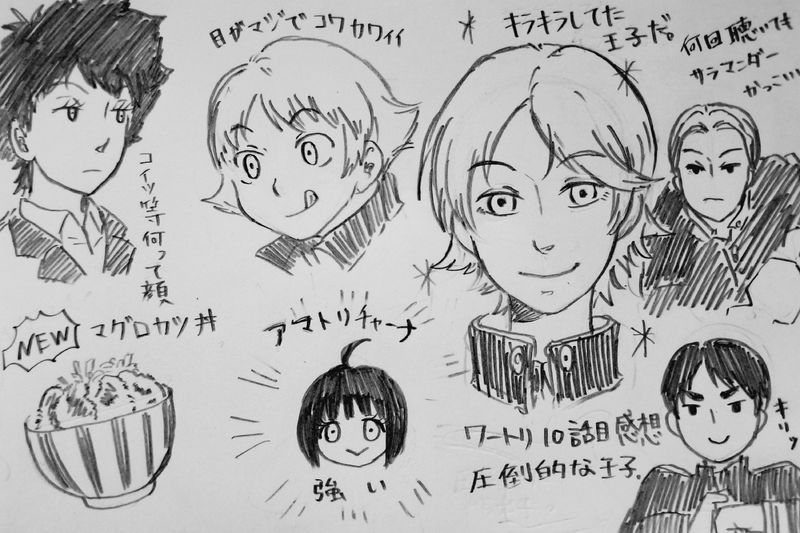 目がマジでコワカワイイ
キラキラしてた
王子だ。
何回聴いても
サラマンダー
かっこいい
コイツ等何って顔
NEW
マグロカツ丼
アマトリチャーナ
強い
ワートリ10話目感想
圧倒的な王子。
キリッ